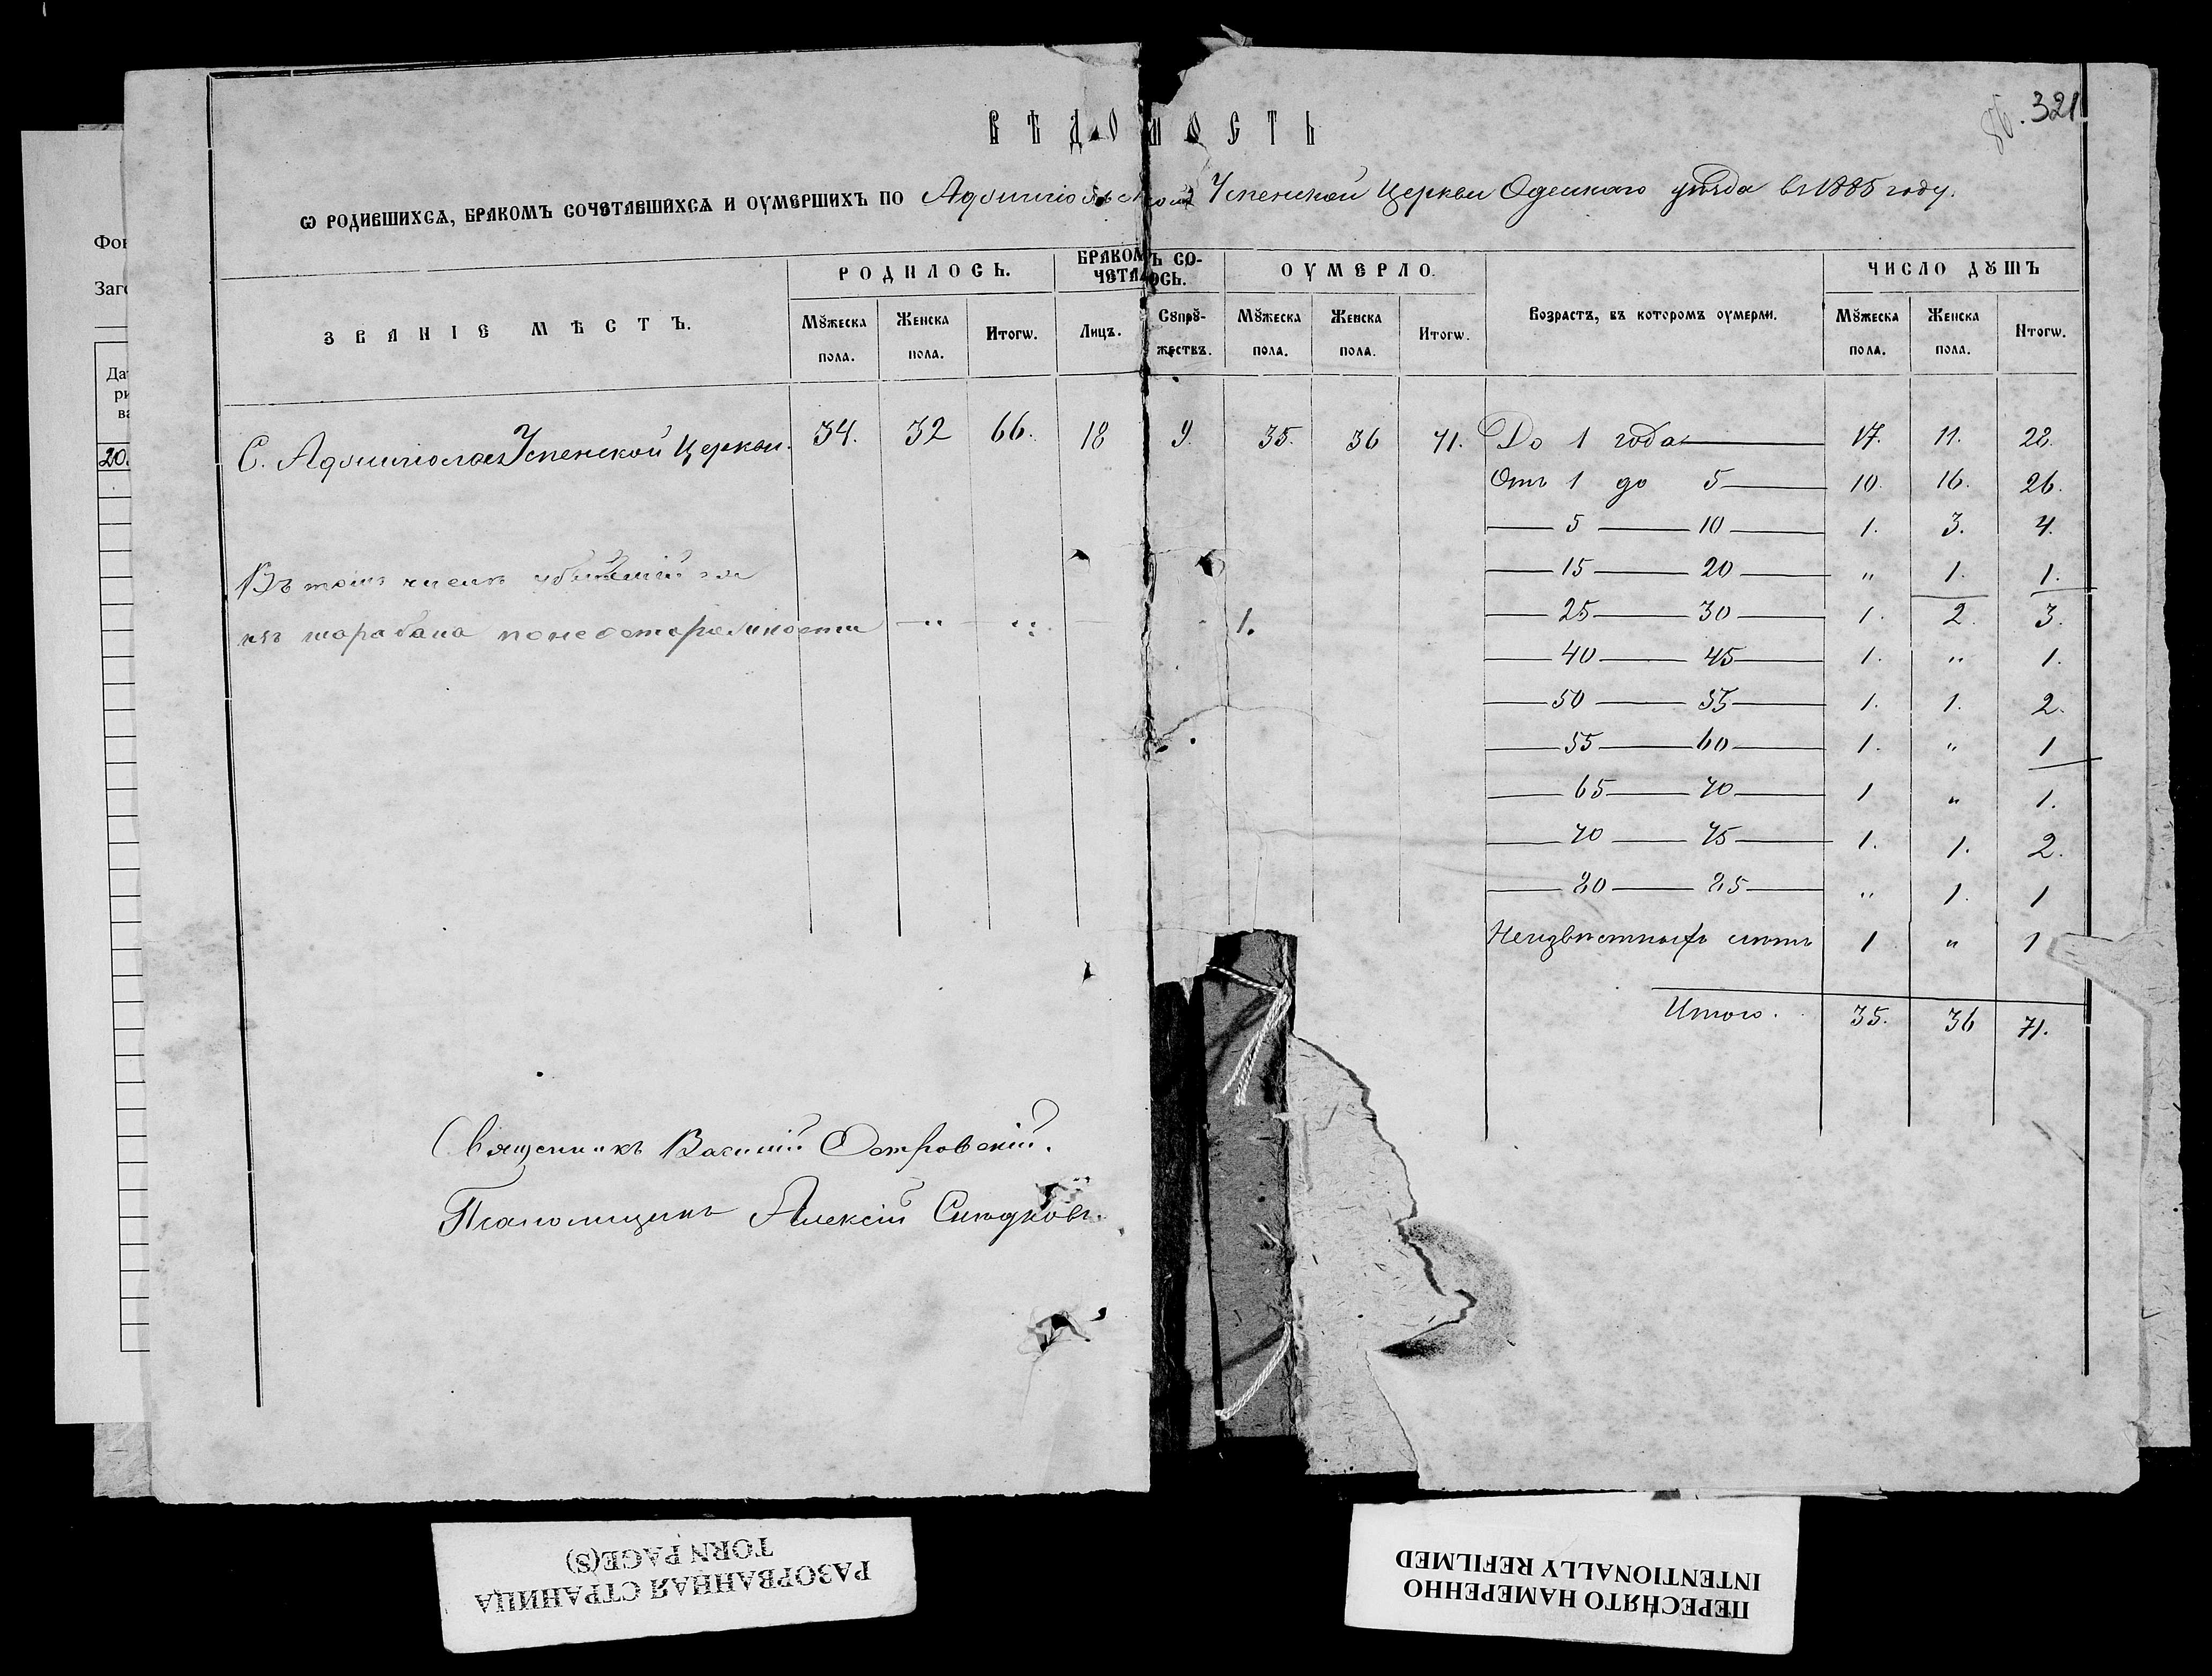 86. 321
ВѢДОМОСТЬ
Ѡ РОДИВШИХСѦ, БРАКОМЪ СОЧЕТАВШИХСѦ И ОУМЕРШИХЪ ПО Успенской Церкви Одескаго уѣзда въ 1885 году.
ЗВАНІЕ МѢСТЪ. РОДИЛОСЬ. БРАКОМЪ СОЧЕТАЛОСЬ. ОУМЕРЛО. Возрастъ, въ которомъ оумерли. ЧИСЛО ДꙊШЪ
Мꙋжеска пола. Женска пола. Итогѡ. Лицъ. Сꙋпрꙋжествъ. Мꙋжеска пола. Женска пола. Итогѡ. Мꙋжеска пола. Женска пола. Итогѡ.
С. Успенской Церкви. 34. 32 66. 18 9. 35. 36 71. До 1 года 17. 11. 28.
Отъ 1 до 5 10. 16. 26.
5 10 1. 3. 4.
15 20 " 1. 1.
25 30 1. 2. 3.
40 45 1. " 1.
50 55 1. 1. 2.
55 60 1. " 1
65 70 1 " 1.
70 75 1. 1. 2.
80 85 " 1. 1
Неизвѣстныхъ лѣтъ 1 " 1
Итого. 35. 36 71.
Въ томъ числѣ
изъ шарабана понеосторожности " " 1.
Священникъ Василій Островскій.
Псаломщикъ Алексій
Фон
Заго
Да
ри
ва
20.
РАЗОРВАННАЯ СТРАНИЦА
TORN PAGE(S)
ПЕРЕСНЯТО НАМЕРЕННО
INTENTIONALLY REFILMED